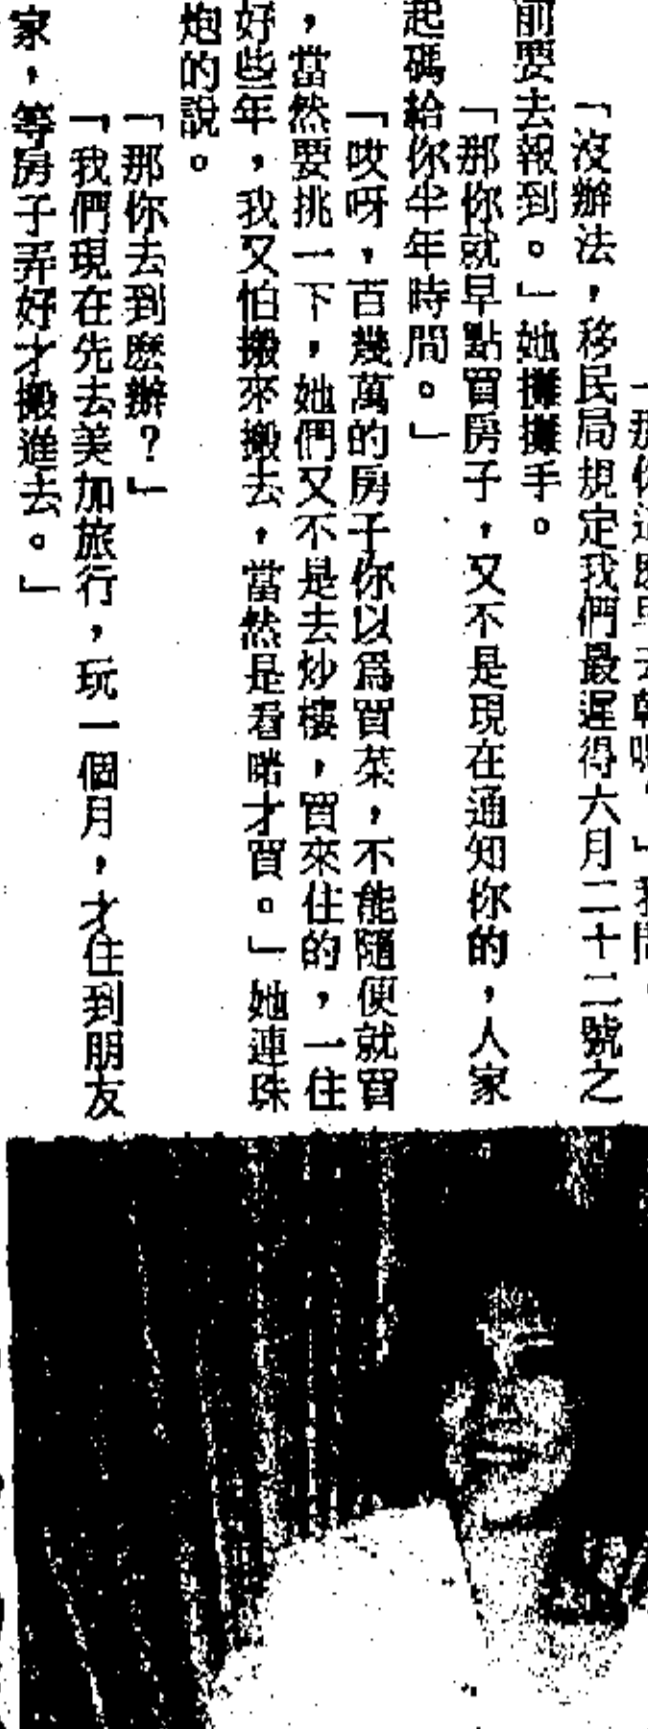 「那你這麼早去幹嗎？」我問。
「沒辦法，移民局規定我們最遲得六月二十二號之
前要去報到。」她攤攤手。
「那你就早點買房子，又不是現在通知你的，人家
起碼給你半年時間。」
「哎呀，百幾萬的房子你以爲買菜，不能隨便就買
，當然要挑一下，她們又不是去炒樓，買來住的，一住
好些年，我又怕搬來搬去，當然是看啱才買。」她連珠
炮的說。
「那你去到麽辦？」
「我們現在先去美加旅行，玩一個月，才住到朋友
家，等房子弄好才搬進去。」